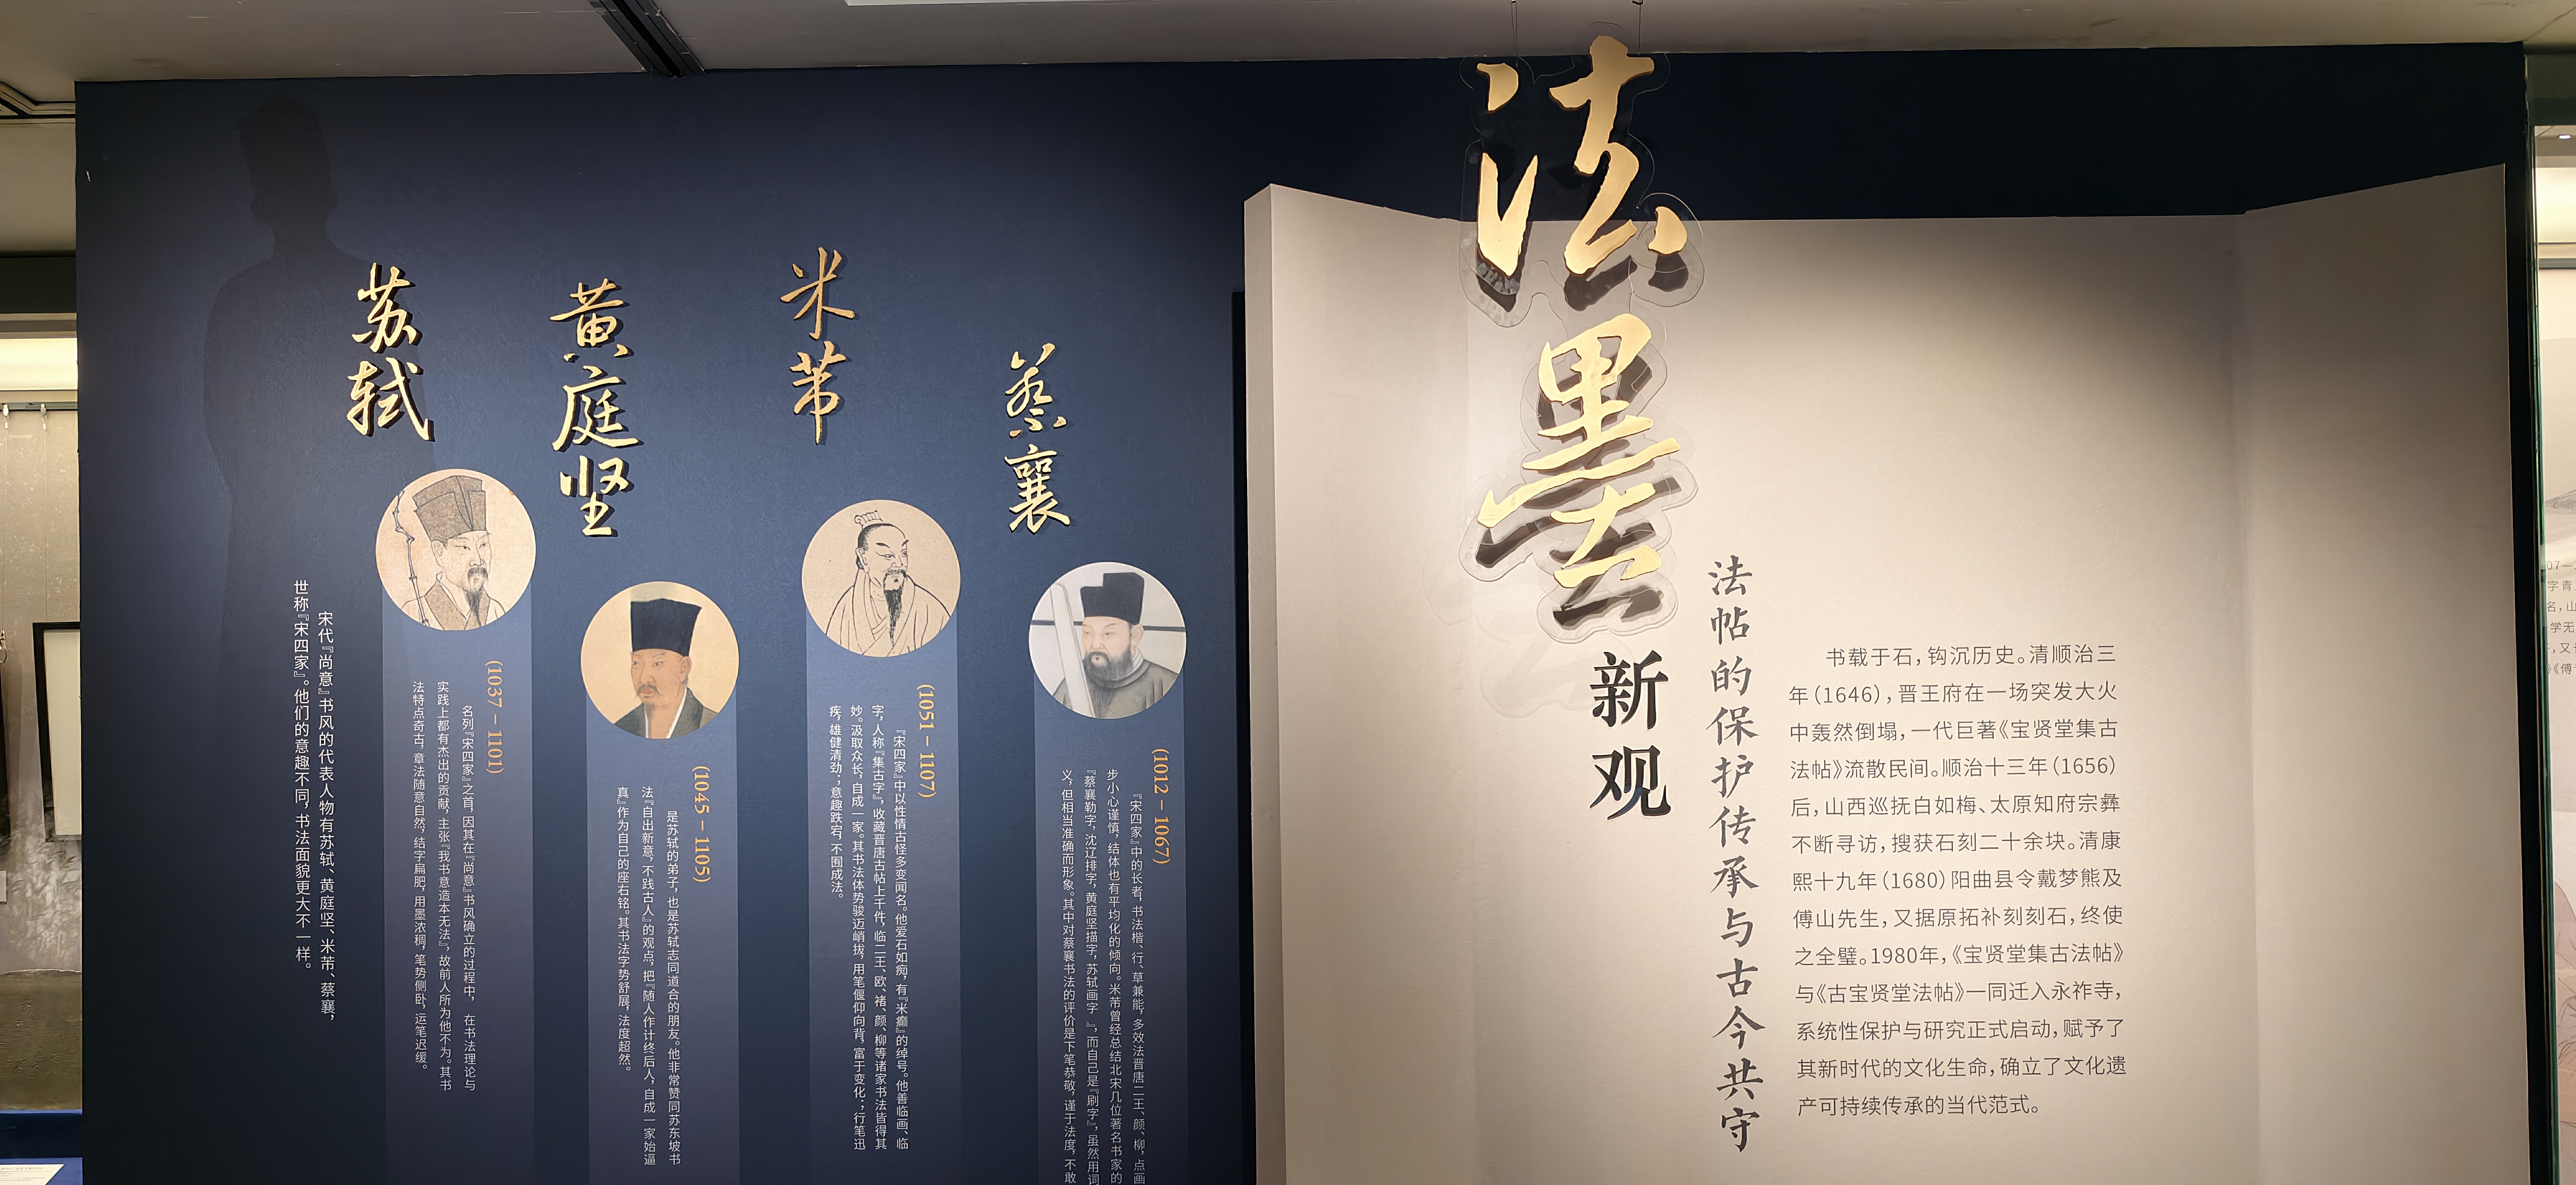 宋代『尚意』书风的代表人物有苏轼、黄庭坚、米芾、蔡襄，
世称『宋四家』。他们的意趣不同，书法面貌更大不一样。
苏轼
(1037 – 1101)
名列『宋四家』之首，因其在『尚意』书风确立的过程中，在书法理论与
实践上都有杰出的贡献，主张『我书意造本无法』，故前人所为他不为。其书
法特点奇古，章法随意自然，结字扁肥，用墨浓稠，笔势侧卧，运笔迟缓。
黄庭坚
(1045 – 1105)
是苏轼的弟子，也是苏轼志同道合的朋友。他非常赞同苏东坡书
法『自出新意，不践古人』的观点，把『随人作计终后人，自成一家始逼
真』作为自己的座右铭。其书法字势舒展，法度超然。
米芾
(1051 – 1107)
『宋四家』中以性情古怪多变闻名。他爱石如痴，有『米癫』的绰号。他善临画、临
字，人称『集古字』，收藏晋唐古帖上千件，临二王、欧、褚、颜、柳等诸家书法皆得其
妙。汲取众长，自成一家。其书法体势骏迈峭拔，用笔偃仰向背，富于变化；行笔迅
疾，雄健清劲；意趣跌宕，不囿成法。
蔡襄
(1012 – 1067)
『宋四家』中的长者，书法楷、行、草兼能，多效法晋唐二王、颜、柳，点画
步小心谨慎，结体也有平均化的倾向。米芾曾经总结北宋几位著名书家的
『蔡襄勒字，沈辽排字，黄庭坚描字，苏轼画字』，而自己是『刷字』，虽然用词
义，但相当准确而形象。其中对蔡襄书法的评价是下笔恭敬，谨于法度，不敢
法墨
新观
法帖的保护传承与古今共守
书载于石，钩沉历史。清顺治三
年（1646），晋王府在一场突发大火
中轰然倒塌，一代巨著《宝贤堂集古
法帖》流散民间。顺治十三年（1656）
后，山西巡抚白如梅、太原知府宗彝
不断寻访，搜获石刻二十余块。清康
熙十九年（1680）阳曲县令戴梦熊及
傅山先生，又据原拓补刻刻石，终使
之全璧。1980年，《宝贤堂集古法帖》
与《古宝贤堂法帖》一同迁入永祚寺，
系统性保护与研究正式启动，赋予了
其新时代的文化生命，确立了文化遗
产可持续传承的当代范式。